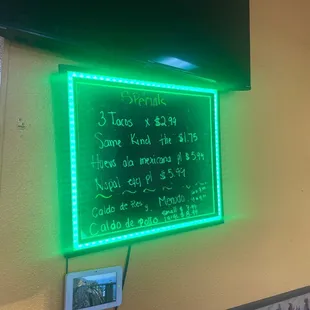 Specials
3 Tacos x $2.99
Same Kind the $1.75
Huevos ala mexicana pl $5.99
Nopal pl $5.99
Caldo de Res y Menudo
Caldo de Pollo small $